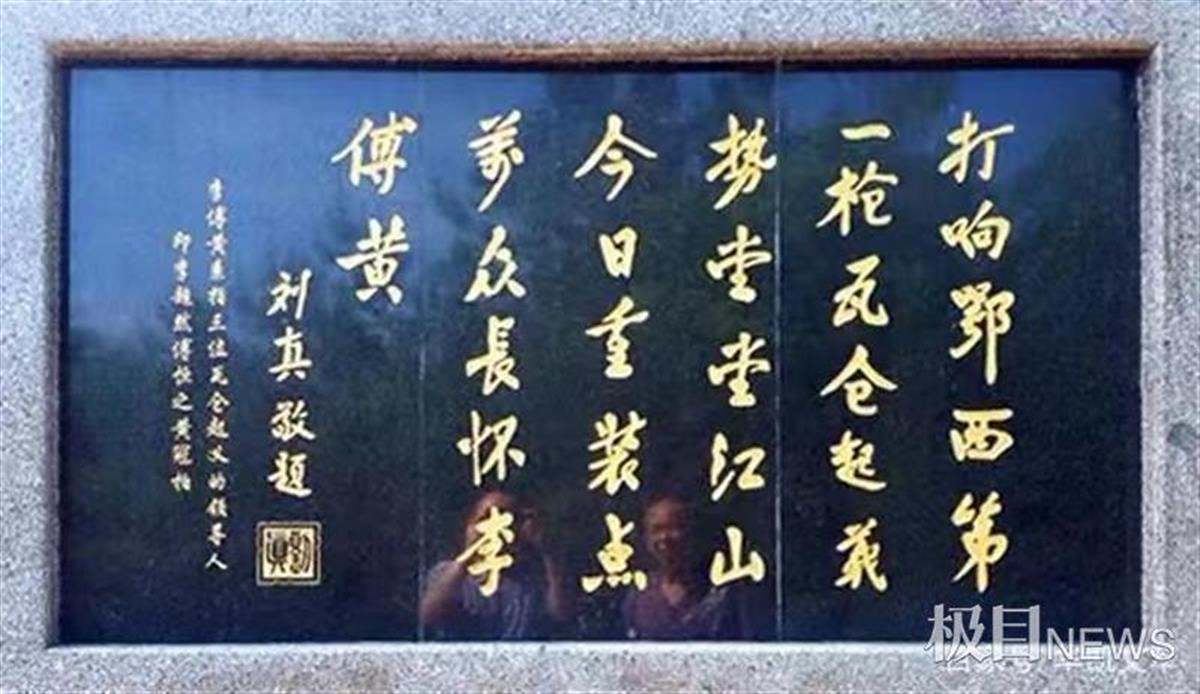 打响鄂西第
一枪瓦仓起義
势堂堂江山
今日重装点
万众長怀李
傅黄
刘真敬題
李傅黄系指三位瓦仓起义的领导人
即李超然傅恒之黄冠柏
极目NEWS